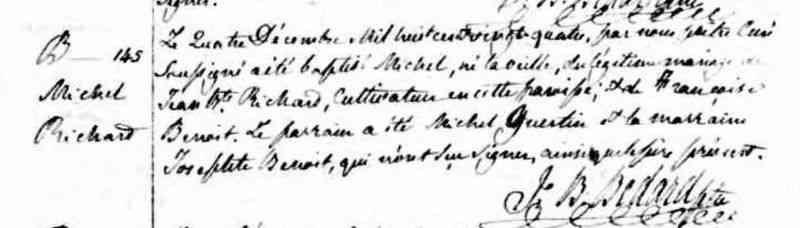 signer.
B — 145
Michel
Richard
Le Quatre Décembre Mil huit cent vingt-quatre, par nous prêtre Curé
Soussigné a été baptisé Michel, né la veille, du légitime mariage de
Jean Bte Richard, Cultivateur en cette paroisse; et de Françoise
Benoit. Le parrain a été Michel Quertin et la marraine
Josephte Benoit, qui n'ont su signer, ainsi que le père présent.
J. B. Bedard Ptre